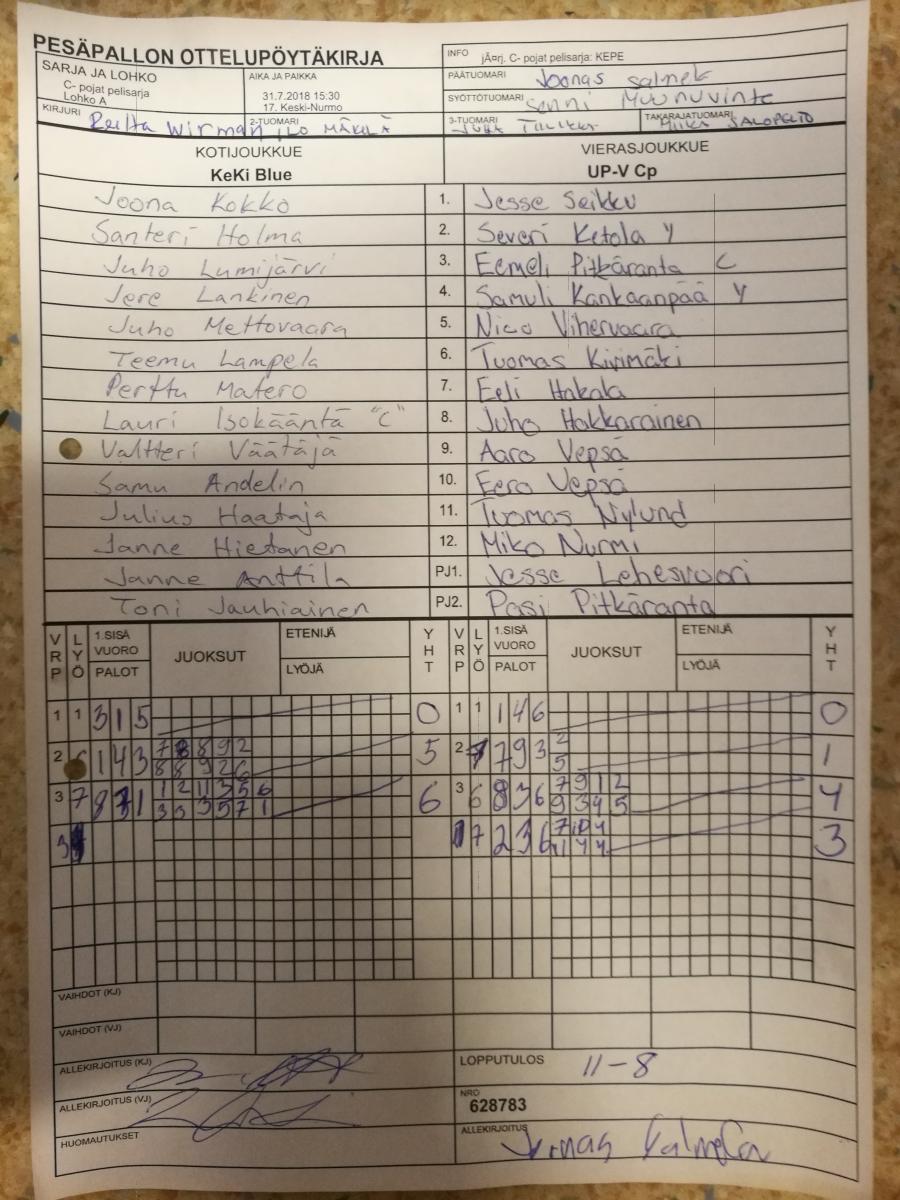 PESÄPALLON OTTELUPÖYTÄKIRJA
SARJA JA LOHKO
C- pojat pelisarja
Lohko A
AIKA JA PAIKKA
31.7.2018 15:30
17. Keski-Nurmo
INFO jÃ¤rj. C- pojat pelisarja: KEPE
PÄÄTUOMARI Joonas
SYÖTTÖTUOMARI
KIRJURI Wirman
2-TUOMARI MÄKELÄ
3-TUOMARI
TAKARAJATUOMARI MIIKA SALOPELTO
KOTIJOUKKUE VIERASJOUKKUE
KeKi Blue UP-V Cp
Joona Kokko 1. Jesse Seikku
Santeri Holma 2. Severi Ketola Y
Juho Lumijärvi 3. Eemeli Pitkäranta C
Jere Lankinen 4. Samuli Kankaanpää Y
Juho Mettovaara 5. Nico Vihervaara
Teemu Lampela 6. Tuomas Kivimäki
Perttu Matero 7. Eeli Hakala
Lauri Isokääntä "C" 8. Juho Hakkarainen
Valtteri Väätäjä 9. Aaro Vepsä
Samu Andelin 10. Eero Vepsä
Julius Haataja 11. Tuomas Nylund
Janne Hietanen 12. Miko Nurmi
Janne Anttila PJ1. Jesse Lehesvuori
Toni Jauhiainen PJ2. Pasi Pitkäranta
VRP LYÖ 1.SISÄ VUORO PALOT JUOKSUT ETENIJÄ LYÖJÄ YHT VRP LYÖ 1.SISÄ VUORO PALOT JUOKSUT ETENIJÄ LYÖJÄ YHT
1 1 3 1 5 0 1 1 1 4 6 0
2 1 4 3 7 8 8 9 2 5 2 7 9 3 2 1
8 8 9 2 6 5
3 7 8 1 1 2 11 3 5 6 6 3 6 8 3 6 7 9 1 2 4
3 3 3 5 7 1 9 3 4 5
7 2 3 6 7 10 4 3
11 4 4
VAIHDOT (KJ)
VAIHDOT (VJ)
ALLEKIRJOITUS (KJ)
LOPPUTULOS 11-8
ALLEKIRJOITUS (VJ)
NRO
628783
HUOMAUTUKSET
ALLEKIRJOITUS